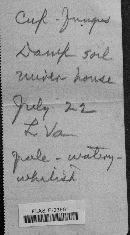 Cup - Fungus
Damp soil
under house
July 22
L Va
pale - watery -
whitish